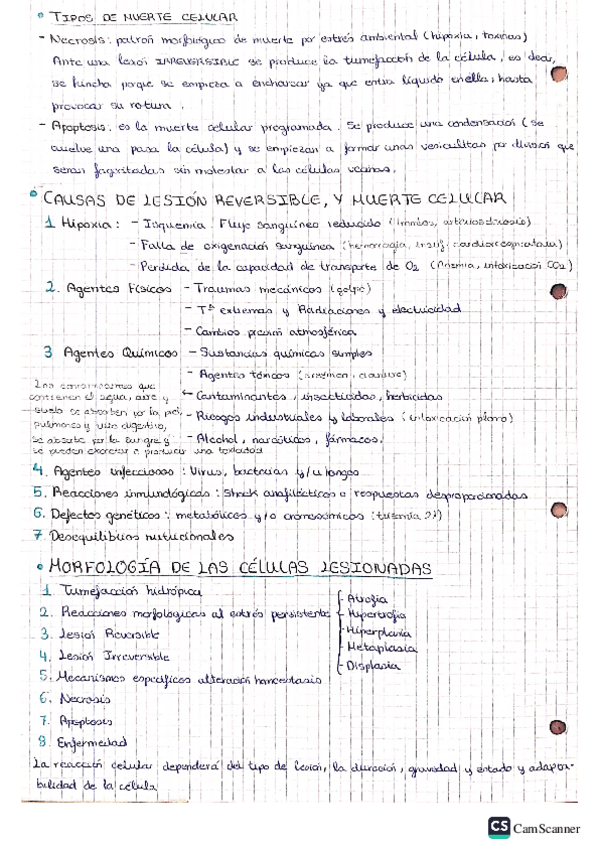 • TIPOS DE MUERTE CELULAR
- Necrosis: patrón morfológico de muerte por estrés ambiental (hipoxia, toxinas)
Ante una lesión IRREVERSIBLE se produce la tumefacción de la célula, es decir,
se hincha porque se empieza a encharcar ya que entra líquido en ella, hasta
provocar su rotura.
- Apoptosis: es la muerte celular programada. Se produce una condensación (se
vuelve una pasa la célula) y se empiezan a formar unas vesiculitas por división que
seran fagocitadas sin molestar a las células vecinas.
• CAUSAS DE LESIÓN REVERSIBLE, Y MUERTE CELULAR
1 Hipoxia: - Isquemia: Flujo sanguíneo reducido (trombos, arteriosclerosis)
- Falla de oxigenación sanguínea (hemorragia, insuf. cardiorespiratoria)
- Perdida de la capacidad de transporte de O2 (Anemia, intoxicación CO2)
2. Agentes Físicos - Traumas mecánicos (golpe)
- Tª extremas y Radiaciones y electricidad
- Cambios presión atmosférica
3 Agentes Químicos - Sustancias químicas simples
- Agentes tóxicos (arsénico, cianuro)
← Contaminantes, insecticidas, herbicidas
- Riesgos industuales y laborales (intoxicación plomo)
- Alcohol, narcóticos, fármacos.
Los contaminantes que
contienen el agua, aire y
suelo se absorben por la piel,
pulmones y vía digestiva,
se absorbe por la sangre y
se pueden excretar o producir una toxicidad
4. Agentes infecciosos: Virus, bacterias y/u hongos
5. Reacciones inmunológicas: Shock anafilácticos o respuestas desproporcionadas
6. Defectos genéticos: metabólicos y/o cromosómicos (trisomía 21)
7 Desequilibrios nutricionales
• MORFOLOGÍA DE LAS CÉLULAS LESIONADAS
1. Tumefacción hidrópica
2. Reacciones morfologicas al estrés persistente
- Atrofia
- Hipertrofia
- Hiperplasia
- Metaplasia
- Displasia
3. Lesión Reversible
4. Lesión Irreversible
5. Mecanismos específicos alteración homeostasis
6. Necrosis
7. Apoptosis
8. Enfermedad
La reacción celular dependerá del tipo de lesión, la duración, gravedad y estado y adapta-
bilidad de la célula
CS CamScanner